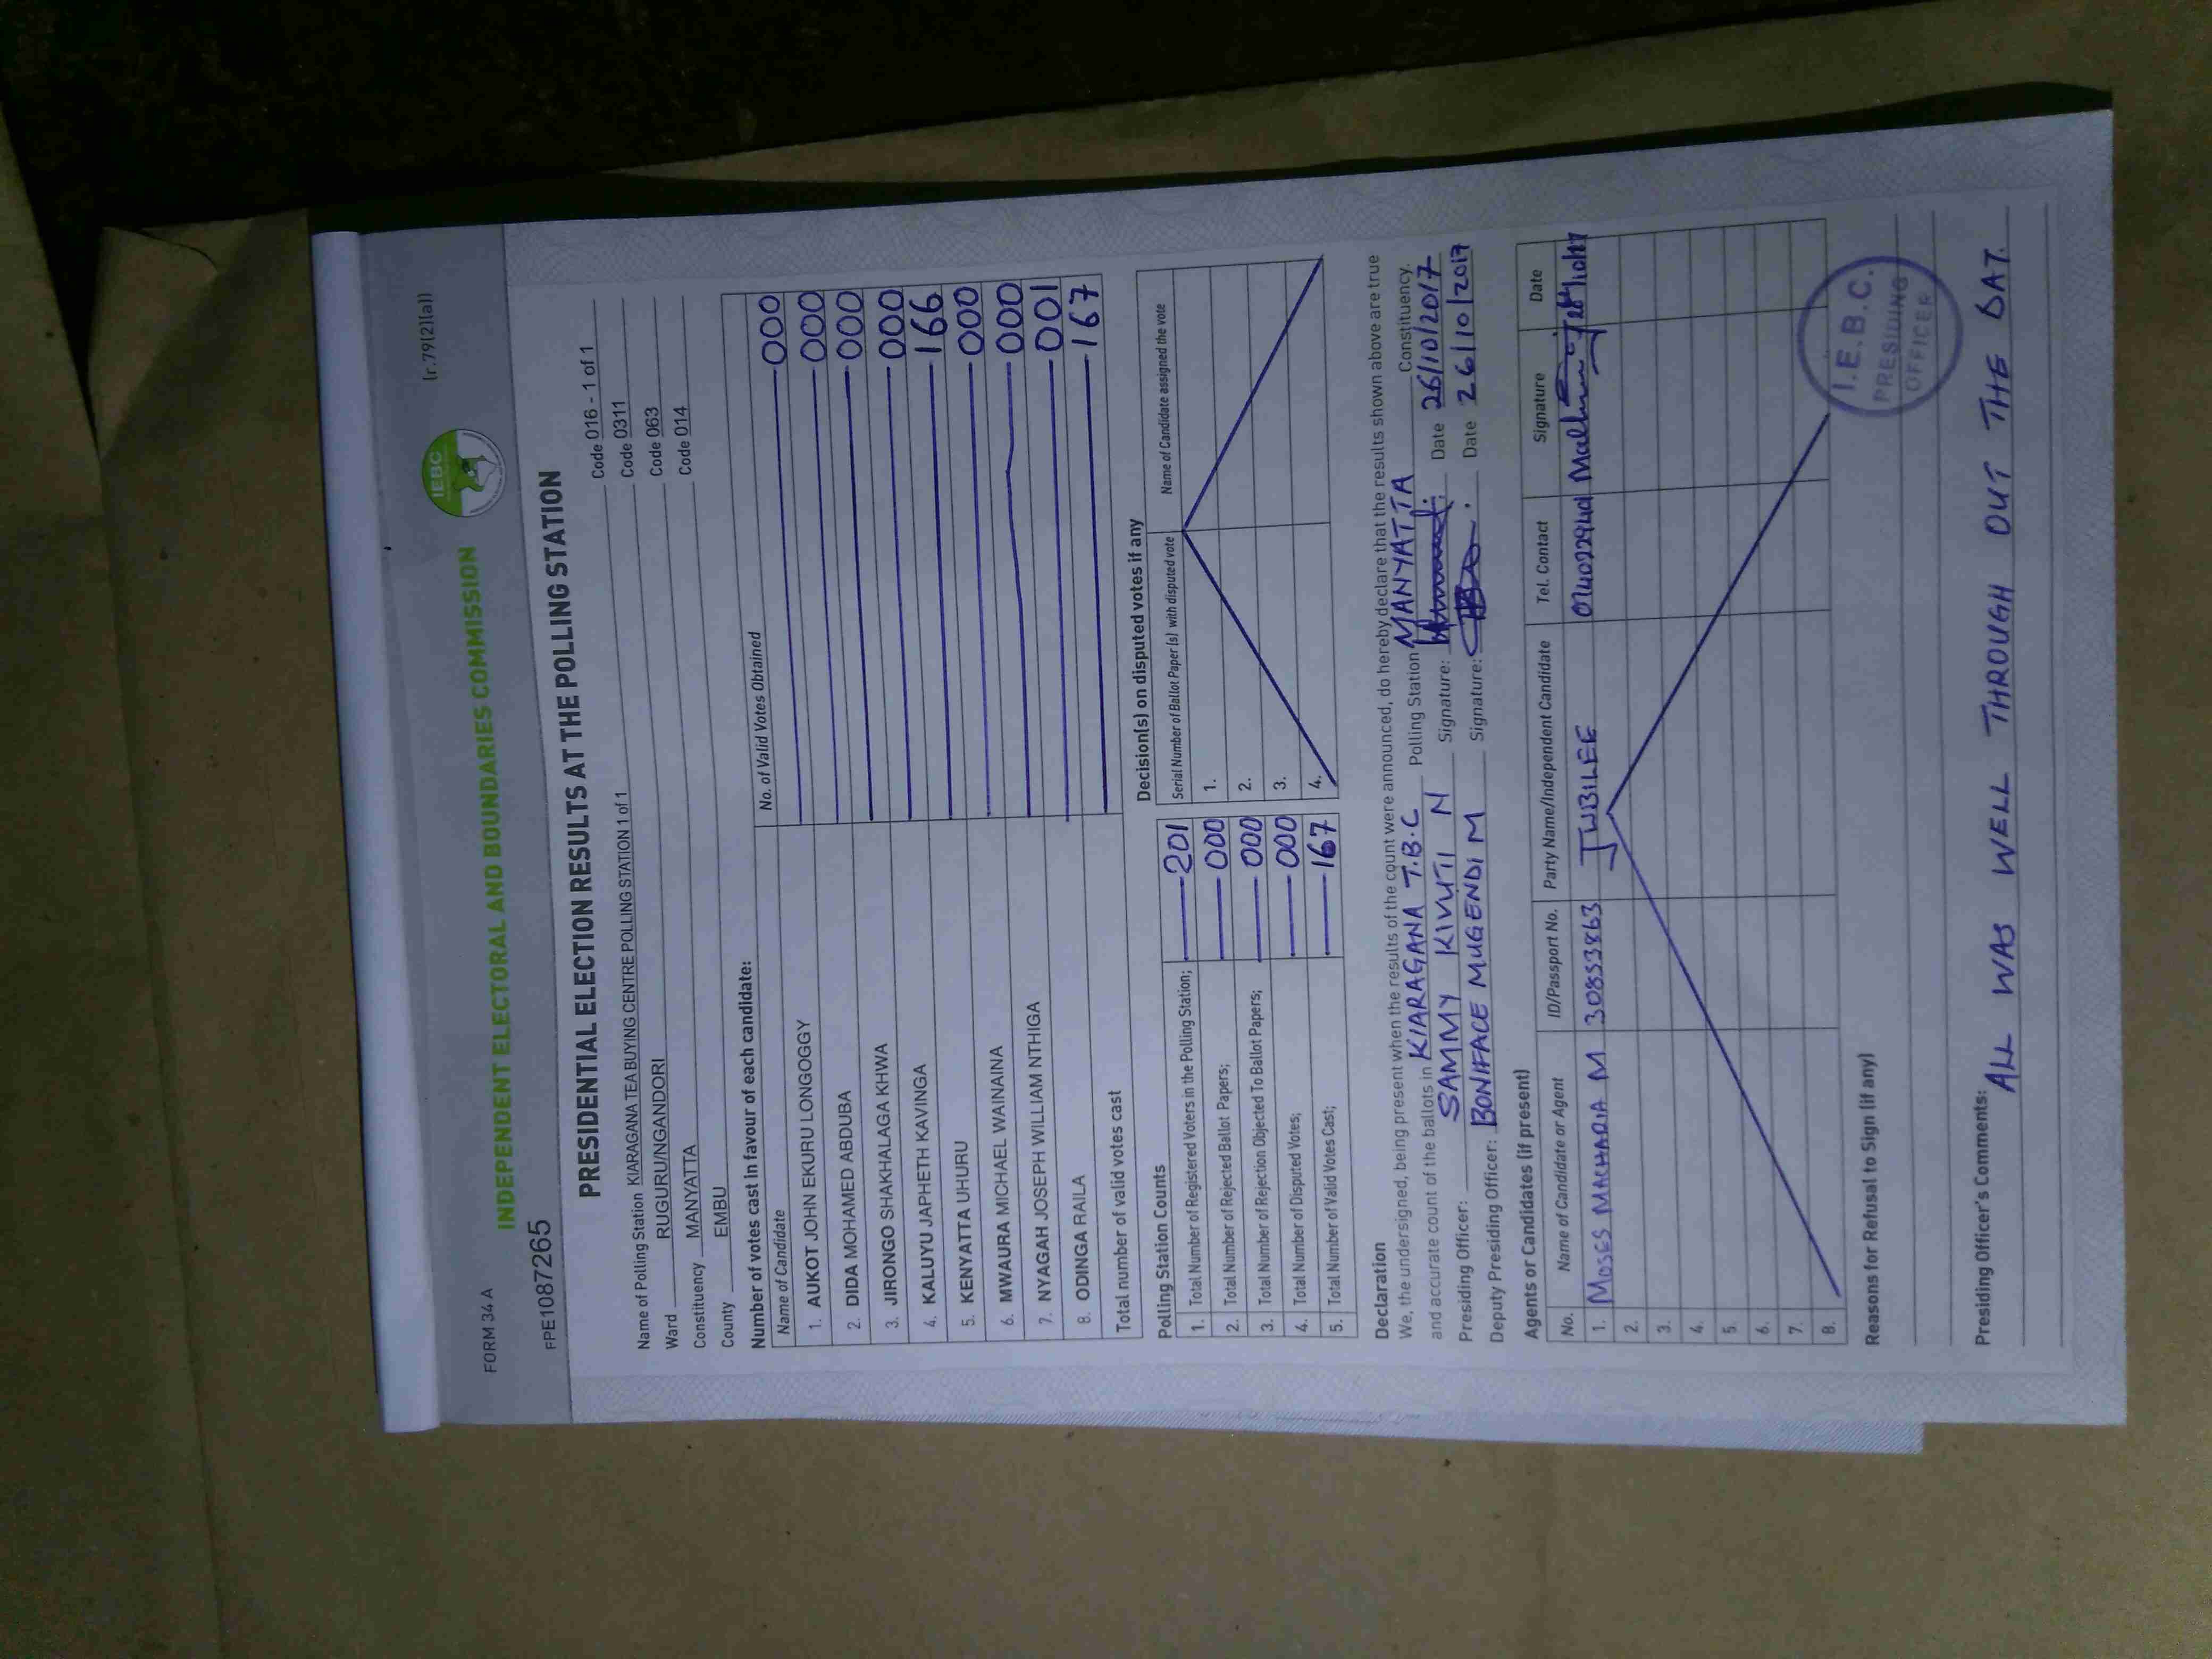 FORM 34 A
(r.79(2)(a))
IEBC
INDEPENDENT ELECTORAL AND BOUNDARIES COMMISSION
FPE1087265
PRESIDENTIAL ELECTION RESULTS AT THE POLLING STATION
Name of Polling Station KIARAGANA TEA BUYING CENTRE POLLING STATION 1 of 1 Code 016 - 1 of 1
Ward RUGURU/NGANDORI Code 0311
Constituency MANYATTA Code 063
County EMBU Code 014
Number of votes cast in favour of each candidate:
Name of Candidate No. of Valid Votes Obtained
1. AUKOT JOHN EKURU LONGOGGY 000
2. DIDA MOHAMED ABDUBA 000
3. JIRONGO SHAKHALAGA KHWA 000
4. KALUYU JAPHETH KAVINGA 000
5. KENYATTA UHURU 166
6. MWAURA MICHAEL WAINAINA 000
7. NYAGAH JOSEPH WILLIAM NTHIGA 000
8. ODINGA RAILA 001
Total number of valid votes cast 167
Polling Station Counts
1. Total Number of Registered Voters in the Polling Station; 201
2. Total Number of Rejected Ballot Papers; 000
3. Total Number of Rejection Objected To Ballot Papers; 000
4. Total Number of Disputed Votes; 000
5. Total Number of Valid Votes Cast; 167
Decision(s) on disputed votes if any
Serial Number of Ballot Paper (s) with disputed vote Name of Candidate assigned the vote
1.
2.
3.
4.
Declaration
We, the undersigned, being present when the results of the count were announced, do hereby declare that the results shown above are true
and accurate count of the ballots in KIARAGANA T.B.C Polling Station MANYATTA Constituency.
Presiding Officer: SAMMY KIVUTI N Signature: Date 26/10/2017
Deputy Presiding Officer: BONIFACE MUGENDI M Signature: Date 26/10/2017
Agents or Candidates (if present)
No. Name of Candidate or Agent ID/Passport No. Party Name/Independent Candidate Tel. Contact Signature Date
1. MOSES MACHARIA M 30853863 JUBILEE
2.
3.
4.
5.
6.
7.
8.
I.E.B.C.
PRESIDING
OFFICER
Reasons for Refusal to Sign (if any)
Presiding Officer's Comments:
ALL WAS WELL THROUGH OUT THE DAY.